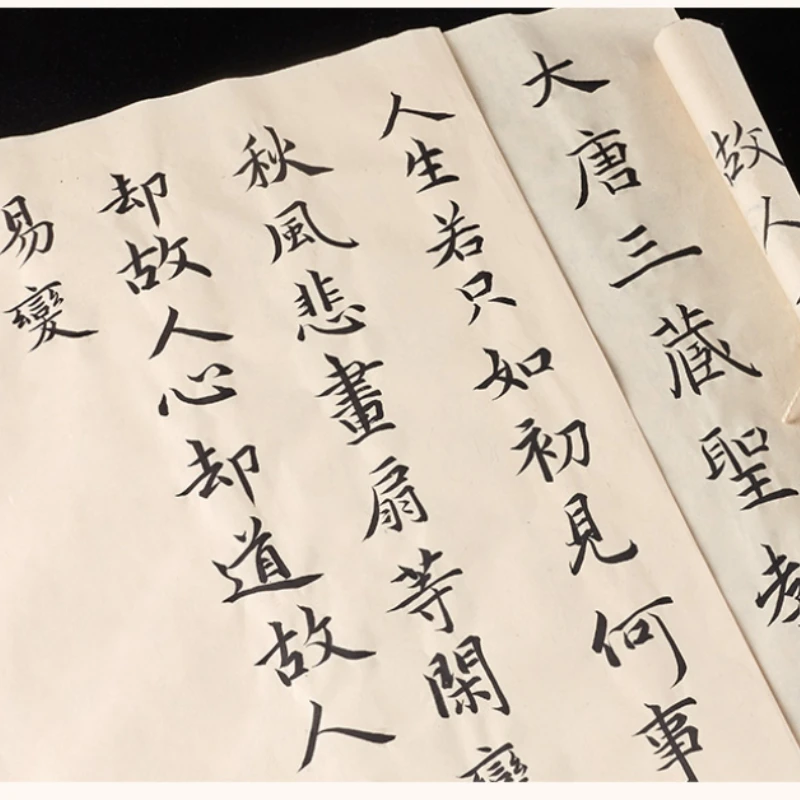 故人
大唐三藏聖教
人生若只如初見何事
秋風悲畫扇等閑變
却故人心却道故人
易變